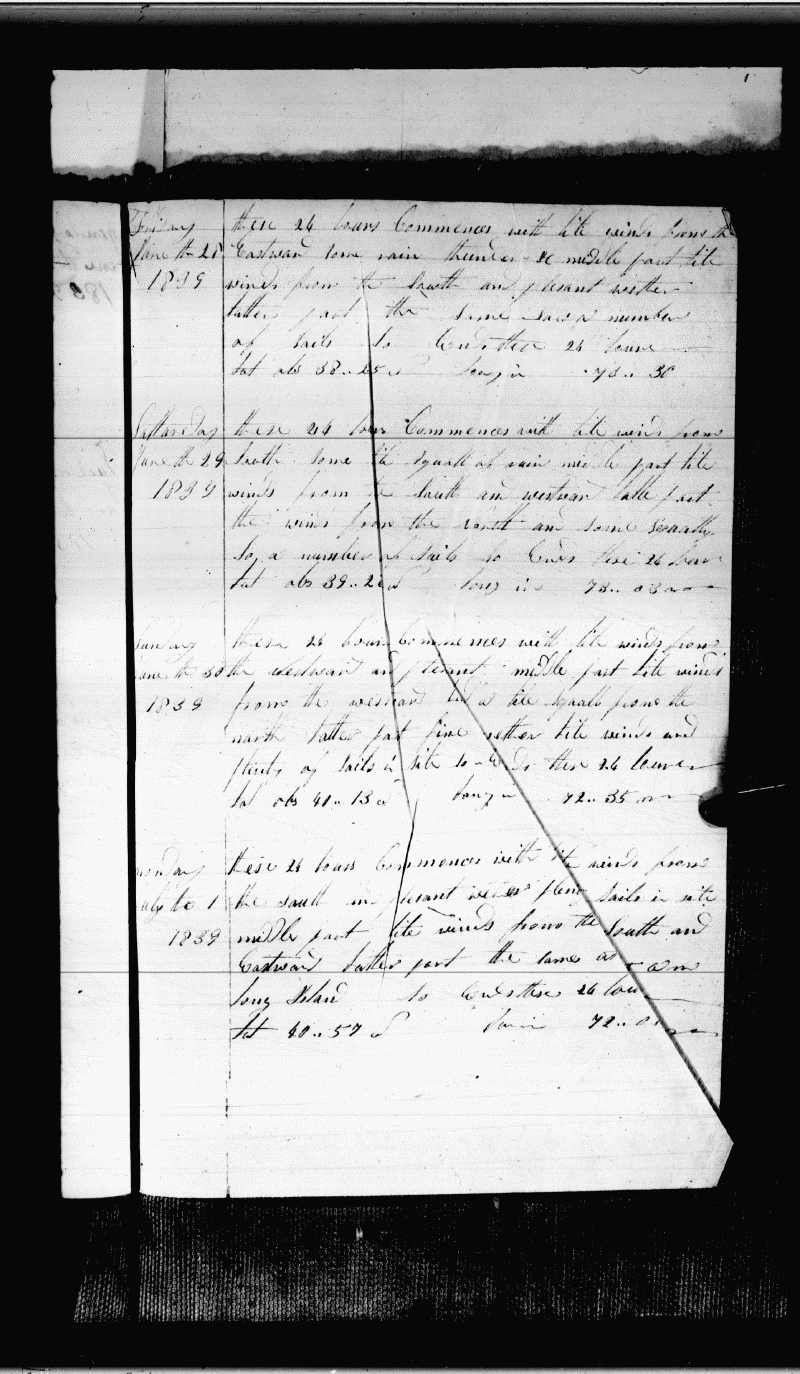 Friday these 24 hours Commences with lite winds from the
June th 28 Eastward some rain thunder &c middle part lite
1839 winds from the South and plesant wether
latter part the same saw a number
of sails So Ends these 24 hours
Lat obs 38..25 Long in 73.. 30
Satturday these 24 hours Commences with lite winds from
June th 29 South some lite squalls of rain middle part lite
1839 winds from the South and westward latter part
the winds from the north and some squally
a number of sails so Ends these 24 hours
Lat obs 39..2 Long in 73..03
Sunday these 24 hours Commences with lite winds from
June th 30 the Westward and plesant middle part lite winds
1839 from the westward a lite squall from the
north latter part fine wether lite winds and
plenty of sails in site so Ends these 24 hours
Lat obs 40..13 Long in 72..35
monday these 24 hours Commences with lite winds from
July the 1 the south and plesant wether plenty sails in site
1839 middle part lite winds from the South and
Eastward latter part the same
Long Island So Ends these 24 hours
Lat 40..57 72..0